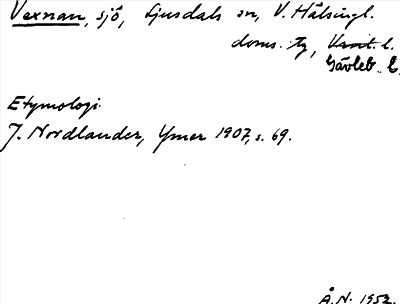 Vexnan, sjö, Ljusdals sn, V. Hälsingl.
doms. tg, l.
Gävleb. l.
Etymologi
J. Nordlander, Ymer 1907, s. 69.
Å.N. 1952.